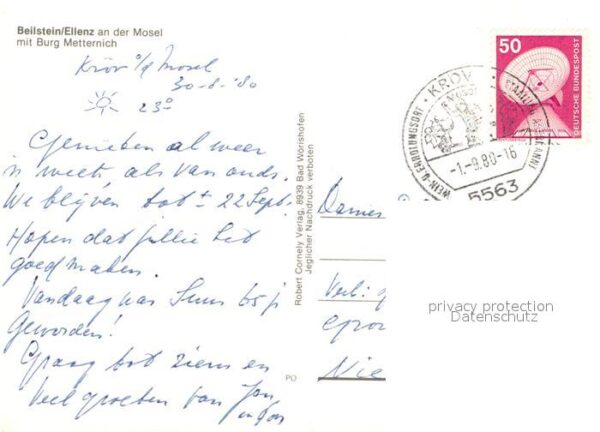 Beilstein/Ellenz an der Mosel
mit Burg Metternich
Kröv a/d Mosel
30-8-'80
23°
Genieten al weer
n week als van ouds.
We blijven tot ± 22 Sept.
Hopen dat jullie het
goed maken.
Vandaag was 65 j
geworden!
Graag tot ziens en
veel groeten van Jan
Robert Cornely Verlag, 8939 Bad Wörishofen
Jeglicher Nachdruck verboten
PO
50
DEUTSCHE BUNDESPOST
KRÖV
WEIN-U.ERHOLUNGSORT
-1.-9.80-16
5563
Dames
privacy protection
Datenschutz